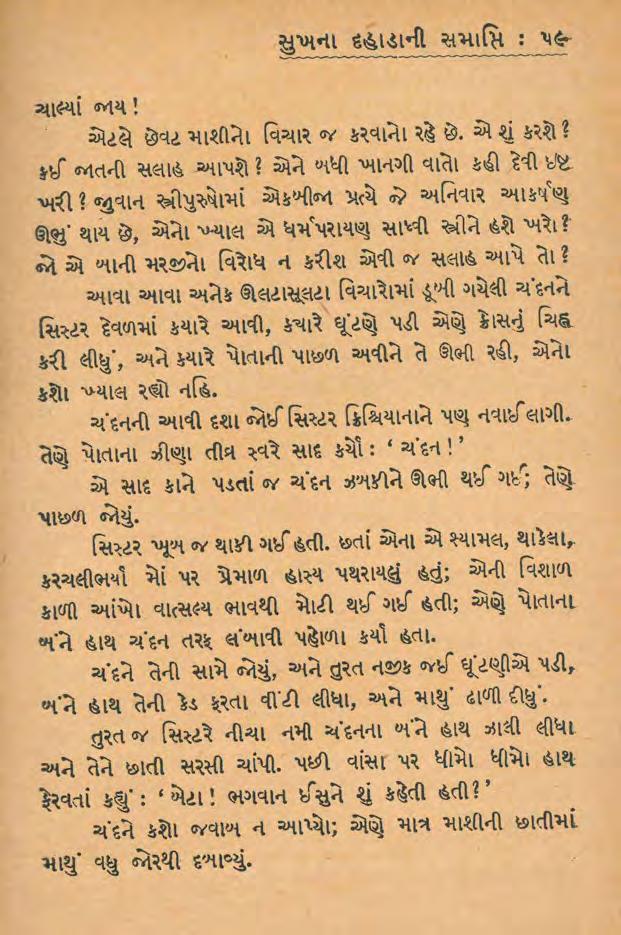 સુખના દહાડાની સમાપ્તિ : ૫૯
ચાલ્યાં જાય!
એટલે છેવટ માશીનો વિચાર જ કરવાનો રહે છે. એ શું કરશે?
કઈ જાતની સલાહ આપશે? એને બધી ખાનગી વાતો કહી દેવી ઇષ્ટ
ખરી? જુવાન સ્ત્રીપુરુષોમાં એકબીજા પ્રત્યે જે અનિવાર આકર્ષણ
ઊભું થાય છે, એનો ખ્યાલ એ ધર્મપરાયણ સાધ્વી સ્ત્રીને હશે ખરો?
જો એ બાની મરજીનો વિરોધ ન કરીશ એવી જ સલાહ આપે તો?
આવા આવા અનેક ઊલટાસૂલટા વિચારોમાં ડૂબી ગયેલી ચંદનને
સિસ્ટર દેવળમાં કયારે આવી, કયારે ઘૂંટણે પડી એણે ક્રોસનું ચિહ્ન
કરી લીધું, અને કયારે પોતાની પાછળ અવીને તે ઊભી રહી, એનો
કશો ખ્યાલ રહ્યો નહિ.
ચંદનની આવી દશા જોઈ સિસ્ટર ક્રિશ્ચિયાનાને પણ નવાઈ લાગી.
તેણે પોતાના ઝીણા તીવ્ર સ્વરે સાદ કર્યો : ‘ ચંદન !’
એ સાદ કાને પડતાં જ ચંદન ઝબકીને ઊભી થઈ ગઈ; તેણે
પાછળ જોયું.
સિસ્ટર ખૂબ જ થાકી ગઈ હતી. છતાં એના એ શ્યામલ, થાકેલા,
કરચલીભર્યા મોં પર પ્રેમાળ હાસ્ય પથરાયલું હતું; એની વિશાળ
કાળી આંખો વાત્સલ્ય ભાવથી મોટી થઈ ગઈ હતી; એણે પોતાના
બંને હાથ ચંદન તરફ લંબાવી પહોળા કર્યા હતા.
ચંદને તેની સામે જોયું, અને તુરત નજીક જઈ ઘૂંટણીએ પડી,
બંને હાથ તેની કેડ ફરતા વીંટી લીધા, અને માથું ઢાળી દીધું.
તુરત જ સિસ્ટરે નીચા નમી ચંદનના બંને હાથ ઝાલી લીધા
અને તેને છાતી સરસી ચાંપી. પછી વાંસા પર ધીમો ધીમો હાથ
ફેરવતાં કહ્યું : ‘બેટા! ભગવાન ઈસુને શું કહેતી હતી?’
ચંદને કશો જવાબ ન આપ્યો; એણે માત્ર માશીની છાતીમાં
માથું વધુ જોરથી દબાવ્યું.